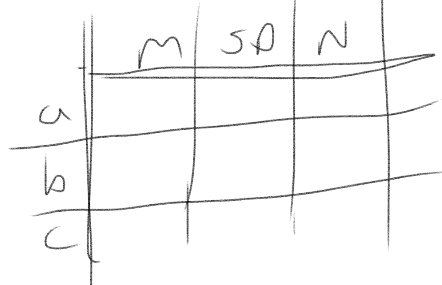 M SD N
a
b
c